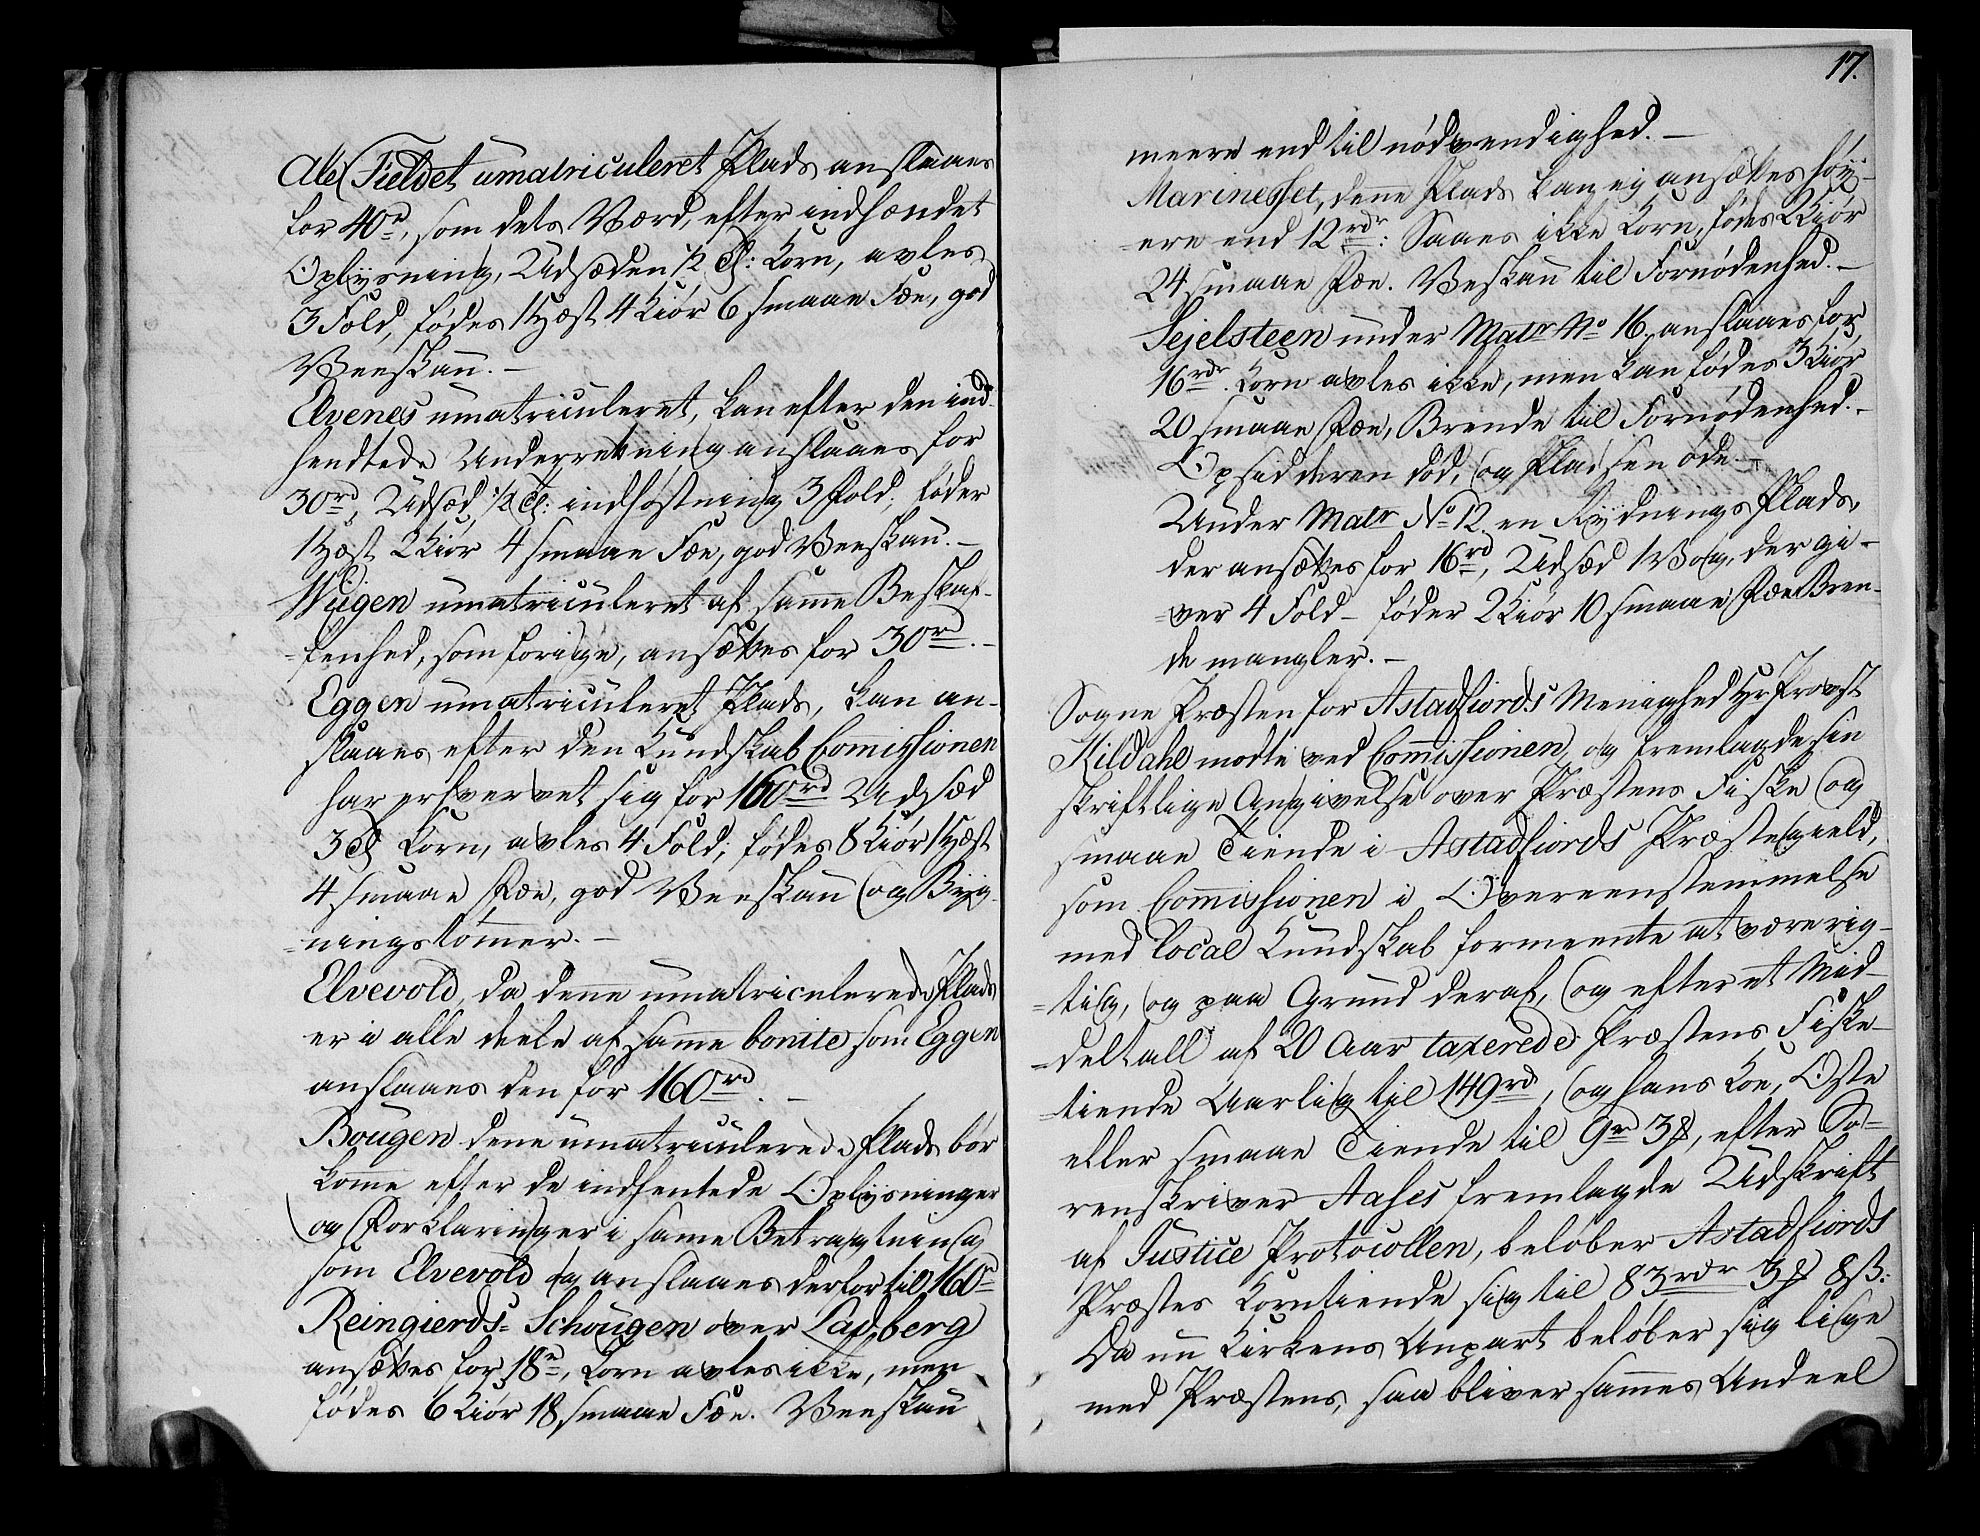 Ale Fieldet umatriculeret Plads anslaaes
for 40rd, som dets Værd, efter indhændet
Oplysning, Udsæden 1/2 Td: Korn, avles
3 Fold, fødes 1 Hæst 4 Kiør 6 smaae Fæe, god
Veeskau. –
Elvenes umatriculeret, kan efter den ind-
hendtede Underretning anslaaes for
30rd, Udsæd 1/2 Td: indhøstning 3 Fold, føder
1 Hæst 2 Kiør 4 smaae Fæe, god Veeskau. –
Wiigen umatriculeret af samme Beskaf-
=fenhed, som forige, ansættes for 30rd. –
Eggen umatriculeret Plads, kan an-
slaaes efter den Kundskab Commissionen
har erhvervet sig for 160rd Udsæd
3 Td Korn, avles 4 Fold; fødes 8 Kiør 1 Hæst
4 smaae Fæe, god Veeskau og Byg-
=ningstømer. –
Elvevold, da denne umatriculerede Plads
er i alle deele af samme bonite som Eggen
anslaaes den for 160rd. –
Bougen denne umatriculerede Plads bør
komme efter de indhentede Oplysninger
og Forklaringer i samme Betragtning
som Elvevold og anslaaes derfor til 160rd
Reingierds= Schougen over Ladberg
ansættes for 18rd, Korn avles ikke, men
fødes 6 Kiør 18 smaae Fæe. Veeskau
17.
meere end til nødvendighed. –
Marinesset, denne Plads kan ej ansættes høy-
=ere end 12rdr: Saaes ikke Korn, fødes 2 Kiør
24 smaae Fæe. Veskau til Fornødenhed. –
Sejelsteen under Matr No 16, anslaaes for
16rdr. Korn avles ikke, men kan fødes 3 Kiør
20 smaae Fæe, Brende til Fornødenhed. –
Opsidderen død, og Pladsen øde. –
Under Matr No 12 en Rydnings Plads,
der ansættes for 16rd, Udsæd 1 Vog, der gi-
=ver 4 Fold – føder 2 Kiør 10 smaae Fæe Bren-
de mangler. –
Sogne Præsten for Astadfiords Menighed Hr Provst
Kildahl mødte ved Commissionen, og fremlagde sin
skriftlige Angivelse over Præstens Fiske og
smaae Tiende i Astadfiords Præstegield,
som Commissionen i Overeenstemmelse
med local Kundskab formeente at være rig-
=tig, og paa Grund deraf, og efter et Mid-
=deltall af 20 Aar taxerede Præstens Fiske-
=tiende Aarlig til 149rd, og hans Koe, Oste
eller smaae Tiende til 9rd 3 ₰, efter So-
renskriver Aases fremlagde Udskrift
af Justice Protocollen, beløber Astadfiords
Præstes Korntiende sig til 83rdr 3 ₰ 8 ß:
Da nu Kirkens Anpart beløber sig lige
med Præstens, saa bliver sammes Andeel